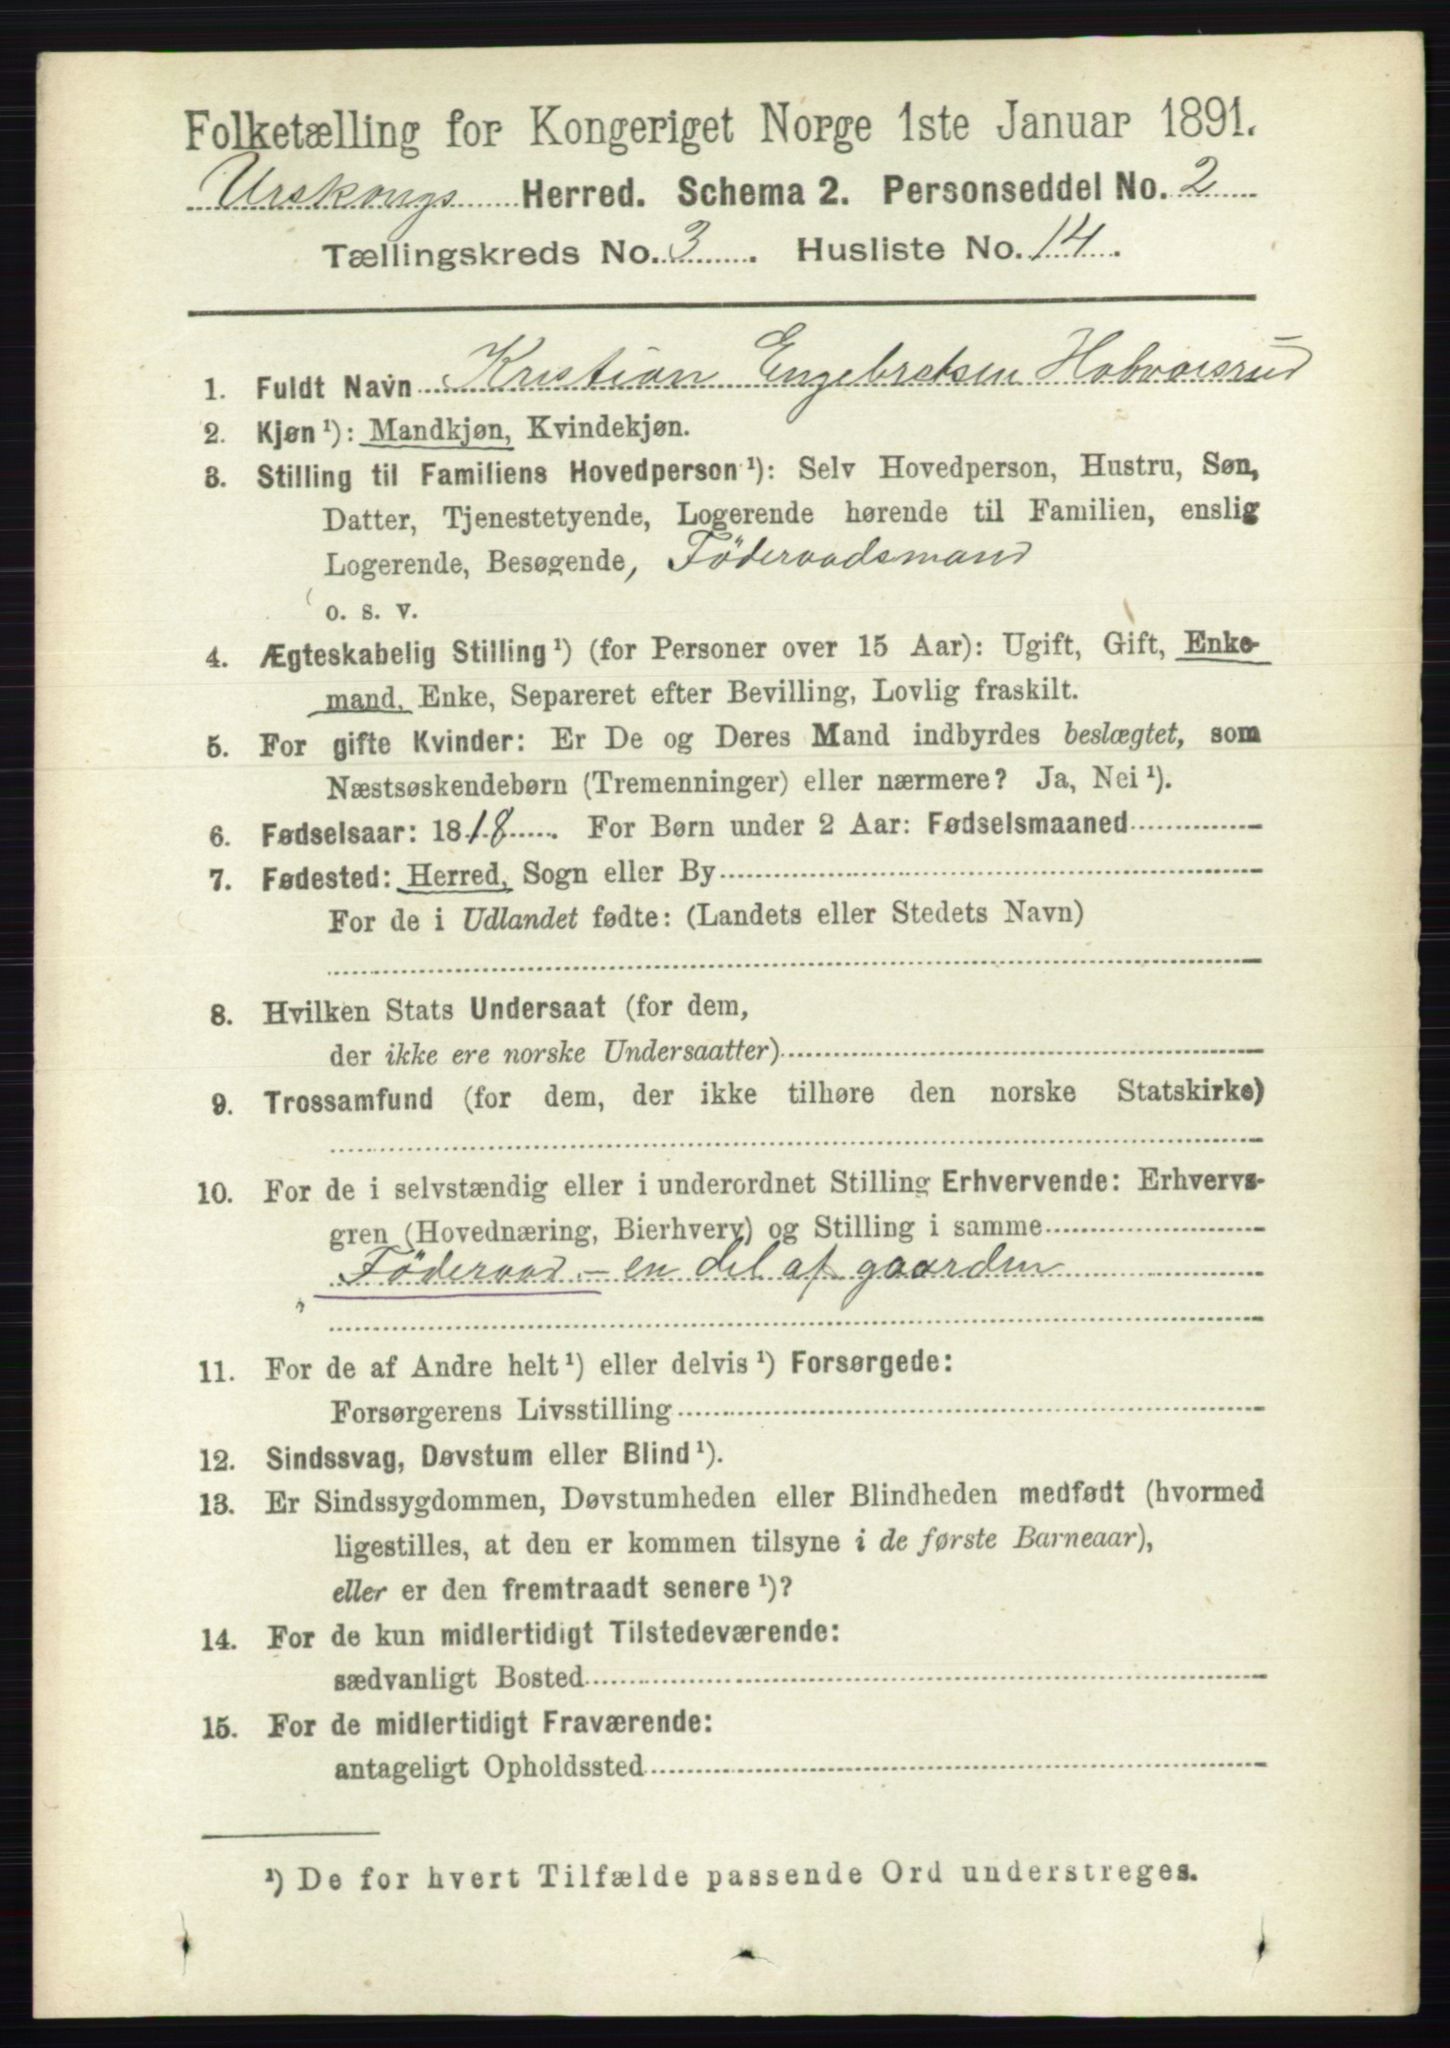 Folketælling for Kongeriget Norge 1ste Januar 1891.
Urskougs Herred. Schema 2. Personseddel No. 2
Tællingskreds No. 3. Husliste No. 14.
1. Fuldt Navn Kristian Engebretsen Halvorsrud
2. Kjøn ¹): Mandkjøn, Kvindekjøn.
3. Stilling til Familiens Hovedperson ¹): Selv Hovedperson, Hustru, Søn,
Datter, Tjenestetyende, Logerende hørende til Familien, enslig
Logerende, Besøgende, Föderaadsmand
o. s. v.
4. Ægteskabelig Stilling ¹) (for Personer over 15 Aar): Ugift, Gift, Enke-
mand, Enke, Separeret efter Bevilling, Lovlig fraskilt.
5. For gifte Kvinder: Er De og Deres Mand indbyrdes beslægtet, som
Næstsøskendebørn (Tremenninger) eller nærmere? Ja, Nei ¹).
6. Fødselsaar: 1818. For Børn under 2 Aar: Fødselsmaaned
7. Fødested: Herred, Sogn eller By
For de i Udlandet fødte: (Landets eller Stedets Navn)
8. Hvilken Stats Undersaat (for dem,
der ikke ere norske Undersaatter)
9. Trossamfund (for dem, der ikke tilhøre den norske Statskirke)
10. For de i selvstændig eller i underordnet Stilling Erhvervende: Erhvervs-
gren (Hovednæring, Bierhverv) og Stilling i samme
Föderaad - en del af gaarden
"
11. For de af Andre helt ¹) eller delvis ¹) Forsørgede:
Forsørgerens Livsstilling
12. Sindssvag, Døvstum eller Blind ¹).
13. Er Sindssygdommen, Døvstumheden eller Blindheden medfødt (hvormed
ligestilles, at den er kommen tilsyne i de første Barneaar),
eller er den fremtraadt senere ¹)?
14. For de kun midlertidigt Tilstedeværende:
sædvanligt Bosted
15. For de midlertidigt Fraværende:
antageligt Opholdssted
¹) De for hvert Tilfælde passende Ord understreges.